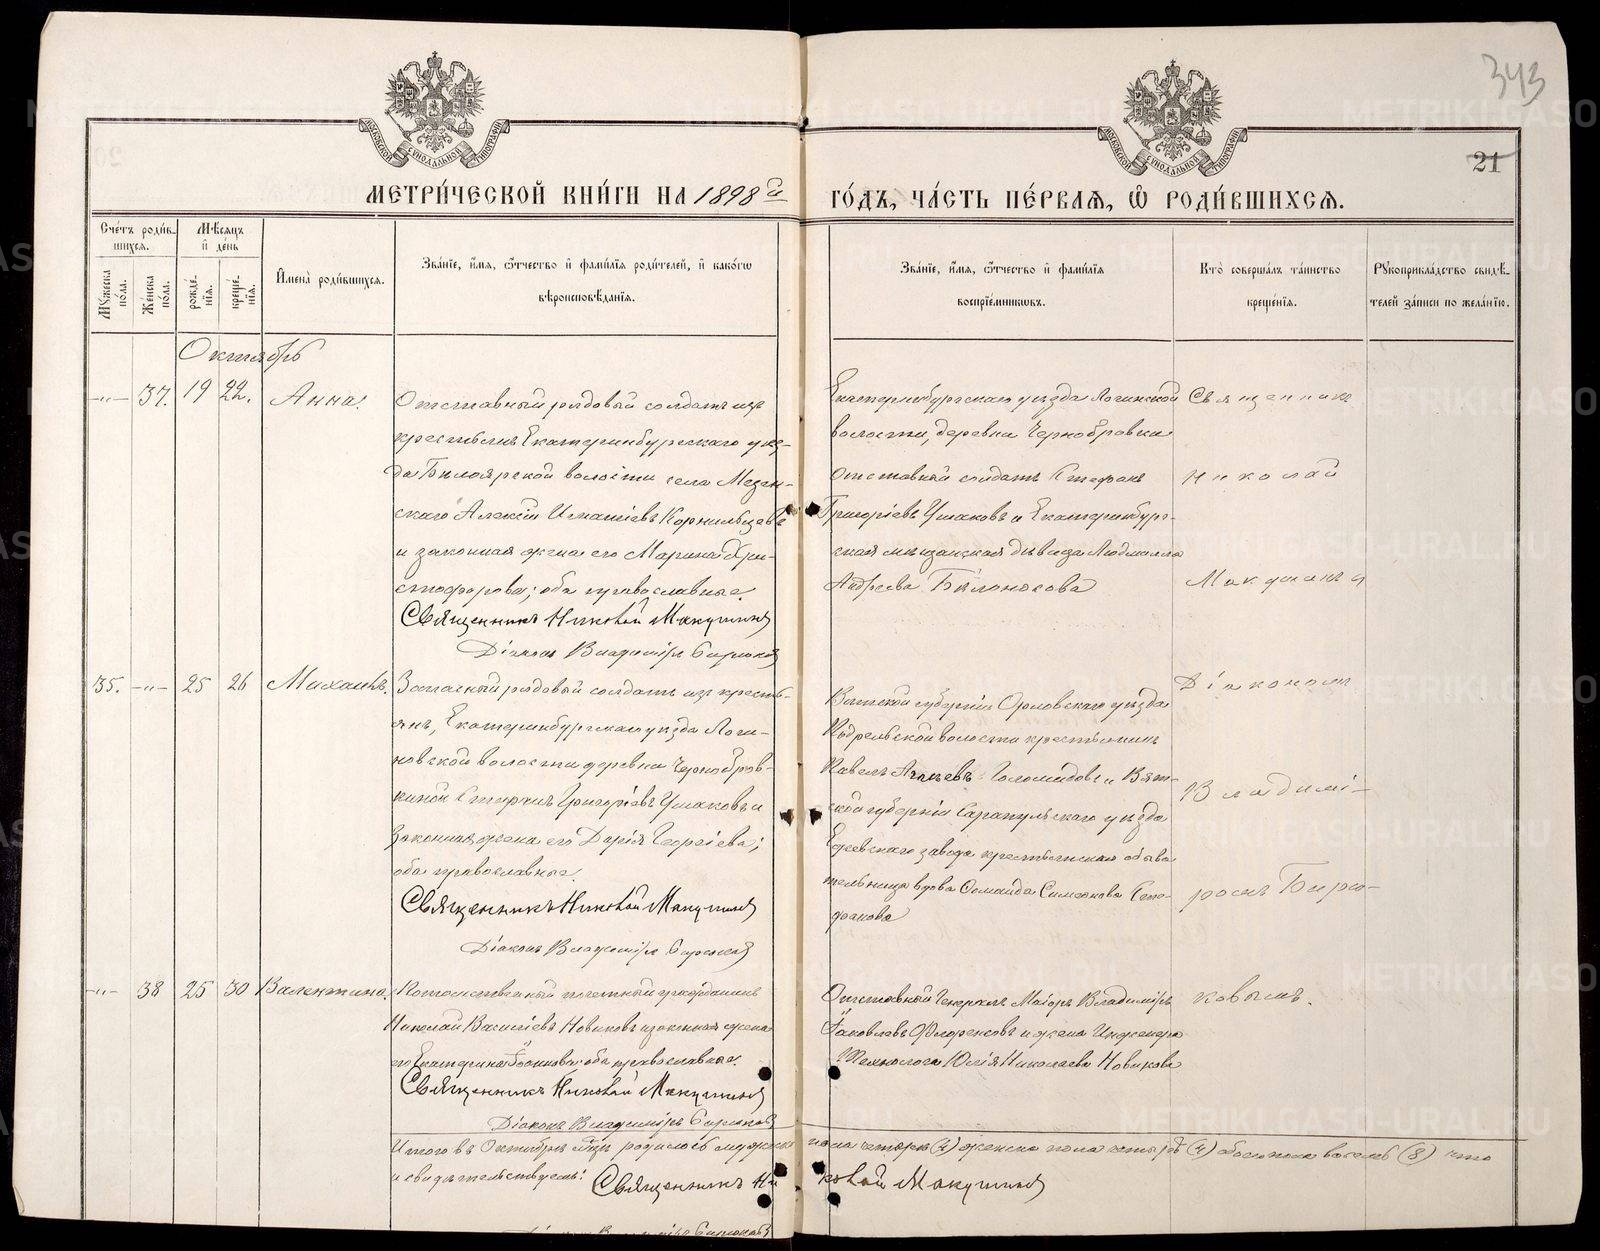 343
21
МОСКОВСКОЙ СѴНОДАЛЬНОЙ ТИПОГРАФІИ
МОСКОВСКОЙ СѴНОДАЛЬНОЙ ТИПОГРАФІИ
МЕТРИ́ЧЕСКОЙ КНИ́ГИ НА 1898 й
ГО́ДЪ, ЧА́СТЬ ПЕ́РВАЯ, Ѽ РОДИ́ВШИХСЯ.
Счетъ роди́в-
шихся.
Му́жеска по́ла.
Же́нска по́ла.
Мѣсяцъ и҆ де́нь
рожде́-
нїя.
креще́-
нїя.
И҆мена̀ роди́вшихся.
Зва́нїе, и҆́мя, ѻ҆́тчество и҆ фамі́лїя роди́телей, и҆ како́гѡ
вѣроисповѣ́данїя.
Зва́нїе, и҆́мя, ѻ҆́тчество и҆ фамі́лїя
воспрїе́мникѡвъ.
Кто̀ соверша́лъ та́инство
креще́нїя.
Рꙋкоприкла́дство свидѣ́-
телей за́писи по жела́нїю.
Октябрь
—"— 37. 19 22. Анна.
Отставный рядовый солдатъ изъ
крестьянъ Екатеринбургскаго уѣз-
да Бѣлоярской волости села Мезен-
скаго Алексій Игнатіевъ Корнильцевъ
и законная жена его Марина Хри-
стофорова; оба православные.
Священникъ Николай Макушинъ
Діаконъ Владиміръ Бирюковъ
Екатеринбургскаго уѣзда Логиновской
волости, деревни Чернобровки
отставный солдатъ Стефанъ
Григоріевъ Ушаковъ и Екатеринбург-
ская мѣщанская дѣвица Людмилла
Андреева Бѣлоносова
Священникъ
Николай
Макушинъ и
35. —"— 25 26 Михаилъ.
Запасный рядовый солдатъ изъ кресть-
янъ, Екатеринбургскаго уѣзда Логи-
новской волости деревни Чернобров-
киной Стефанъ Григоріевъ Ушаковъ и
законная жена его Дарія Георгіева;
оба православные.
Священникъ Николай Макушинъ
Діаконъ Владиміръ Бирюковъ
Вятской губерніи Орловскаго уѣзда
волости крестьянинъ
Павелъ и Вят-
ской губерніи Сарапульскаго уѣзда
завода крестьянская обыва-
тельница вдова Симеонова Сте-
фанова
Діакономъ
Владимі-
ромъ Бирю-
ковымъ.
—"— 38 25 30 Валентина.
Потомственный почетный гражданинъ
Николай Василіевъ Новиковъ и законная жена
его Екатерина Іоаннова; оба православные.
Священникъ Николай Макушинъ
Діаконъ Владиміръ Бирюковъ
Отставный Генералъ Маіоръ Владиміръ
Іаковлевъ Флоренсовъ и жена Инженера
Технолога Юлія Николаева Новикова
Итого въ Октябрѣ мѣсяцѣ родилось мужска пола четыре (4) женска пола четыре (4) обоего пола восемь (8) что
и свидѣтельствуемъ: Священникъ Николай Макушинъ
Діаконъ Владиміръ Бирюковъ